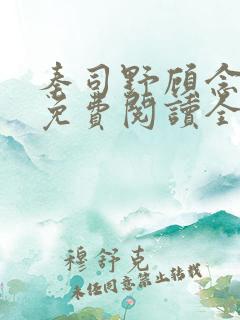 秦司野顾念
免費閱讀全
穆舒克
未经同意禁止转载